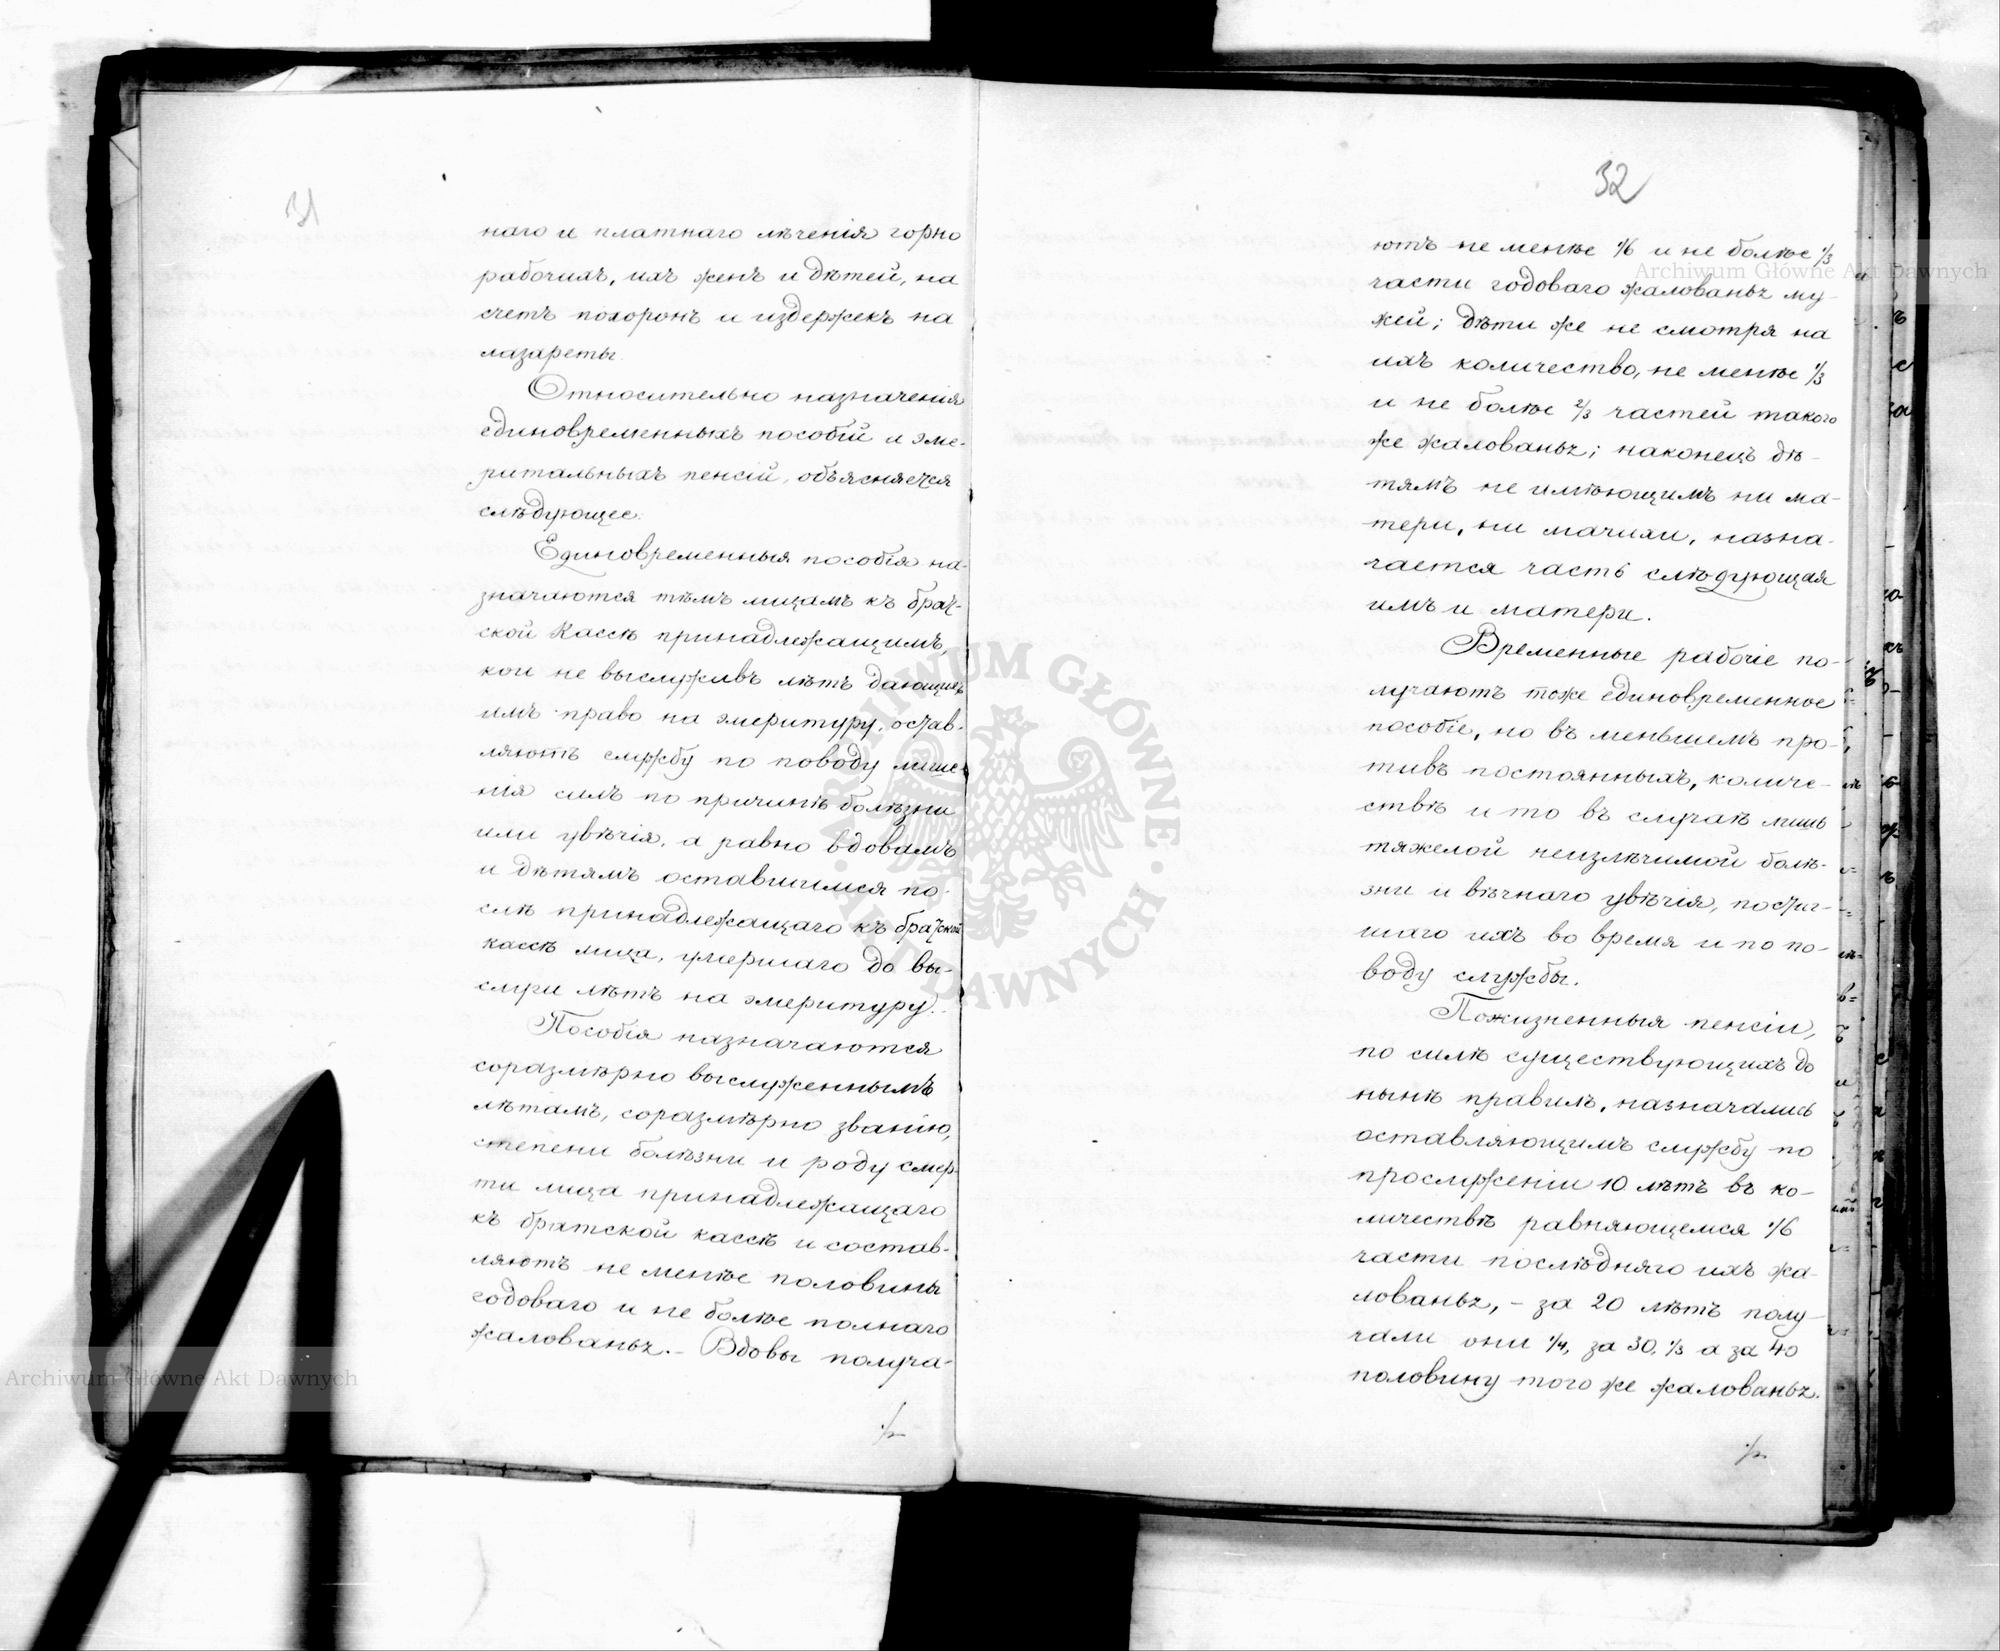 31
наго и платнаго лѣченія горно
рабочихъ, ихъ женъ и дѣтей, на
счетъ похоронъ и издержекъ на
лазареты.
Относительно назначенія
единовременныхъ пособій и эме-
ритальныхъ пенсій, объясняется
слѣдующее:
Единовременныя пособія на-
значаются тѣмъ лицамъ къ брат-
ской Кассѣ принадлежащимъ,
кои не выслуживъ лѣтъ дающихъ
имъ право на эмеритуру, остав-
ляютъ службу по поводу лише-
нія силъ по причинѣ болѣзни
или увѣчія, а равно вдовамъ
и дѣтямъ оставшимся по-
слѣ принадлежащаго къ братской
кассѣ лица, умершаго до вы-
слуги лѣтъ на эмеритуру.
Пособія назначаются
соразмѣрно выслуженнымъ
лѣтамъ, соразмѣрно званію,
степени болѣзни и роду смер-
ти лица принадлежащаго
къ братской кассѣ и состав-
ляютъ не менѣе половины
годоваго и не болѣе полнаго
жалованья. — Вдовы получа-
32
ютъ не менѣе 1/6 и не болѣе 1/3
части годоваго жалованья му-
жей; дѣти же не смотря на
ихъ количество, не менѣе 1/3
и не болѣе 2/3 частей такого
же жалованья; наконецъ дѣ-
тямъ не имѣющимъ ни ма-
тери, ни мачихи, назна-
чается часть слѣдующая
имъ и матери.
Временные рабочіе по-
лучаютъ тоже единовременное
пособіе, но въ меньшемъ про-
тивъ постоянныхъ, количе-
ствѣ и то въ случаѣ лишь
тяжелой неизлѣчимой болѣ-
зни и вѣчнаго увѣчія, постиг-
шаго ихъ во время и по по-
воду службы.
Пожизненныя пенсіи,
по силѣ существующихъ до
нынѣ правилъ, назначались
оставляющимъ службу по
прослуженіи 10 лѣтъ въ ко-
личествѣ равняющемся 1/6
части послѣдняго ихъ жа-
лованья, — за 20 лѣтъ полу-
чали они 1/4, за 30, 1/3 а за 40
половину того же жалованья.
Archiwum Główne Akt Dawnych
ARCHIWUM GŁÓWNE · AKT DAWNYCH ·
Archiwum Główne Akt Dawnych